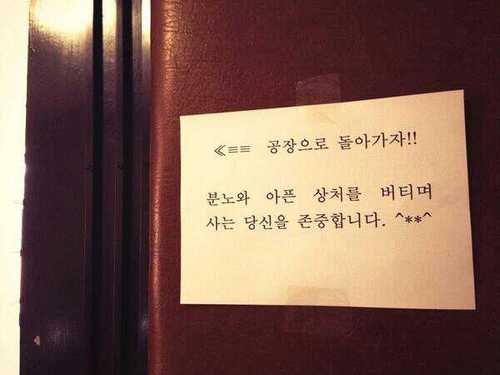 ≪≡≡ 공장으로 돌아가자!!
분노와 아픈 상처를 버티며
사는 당신을 존중합니다. ^**^